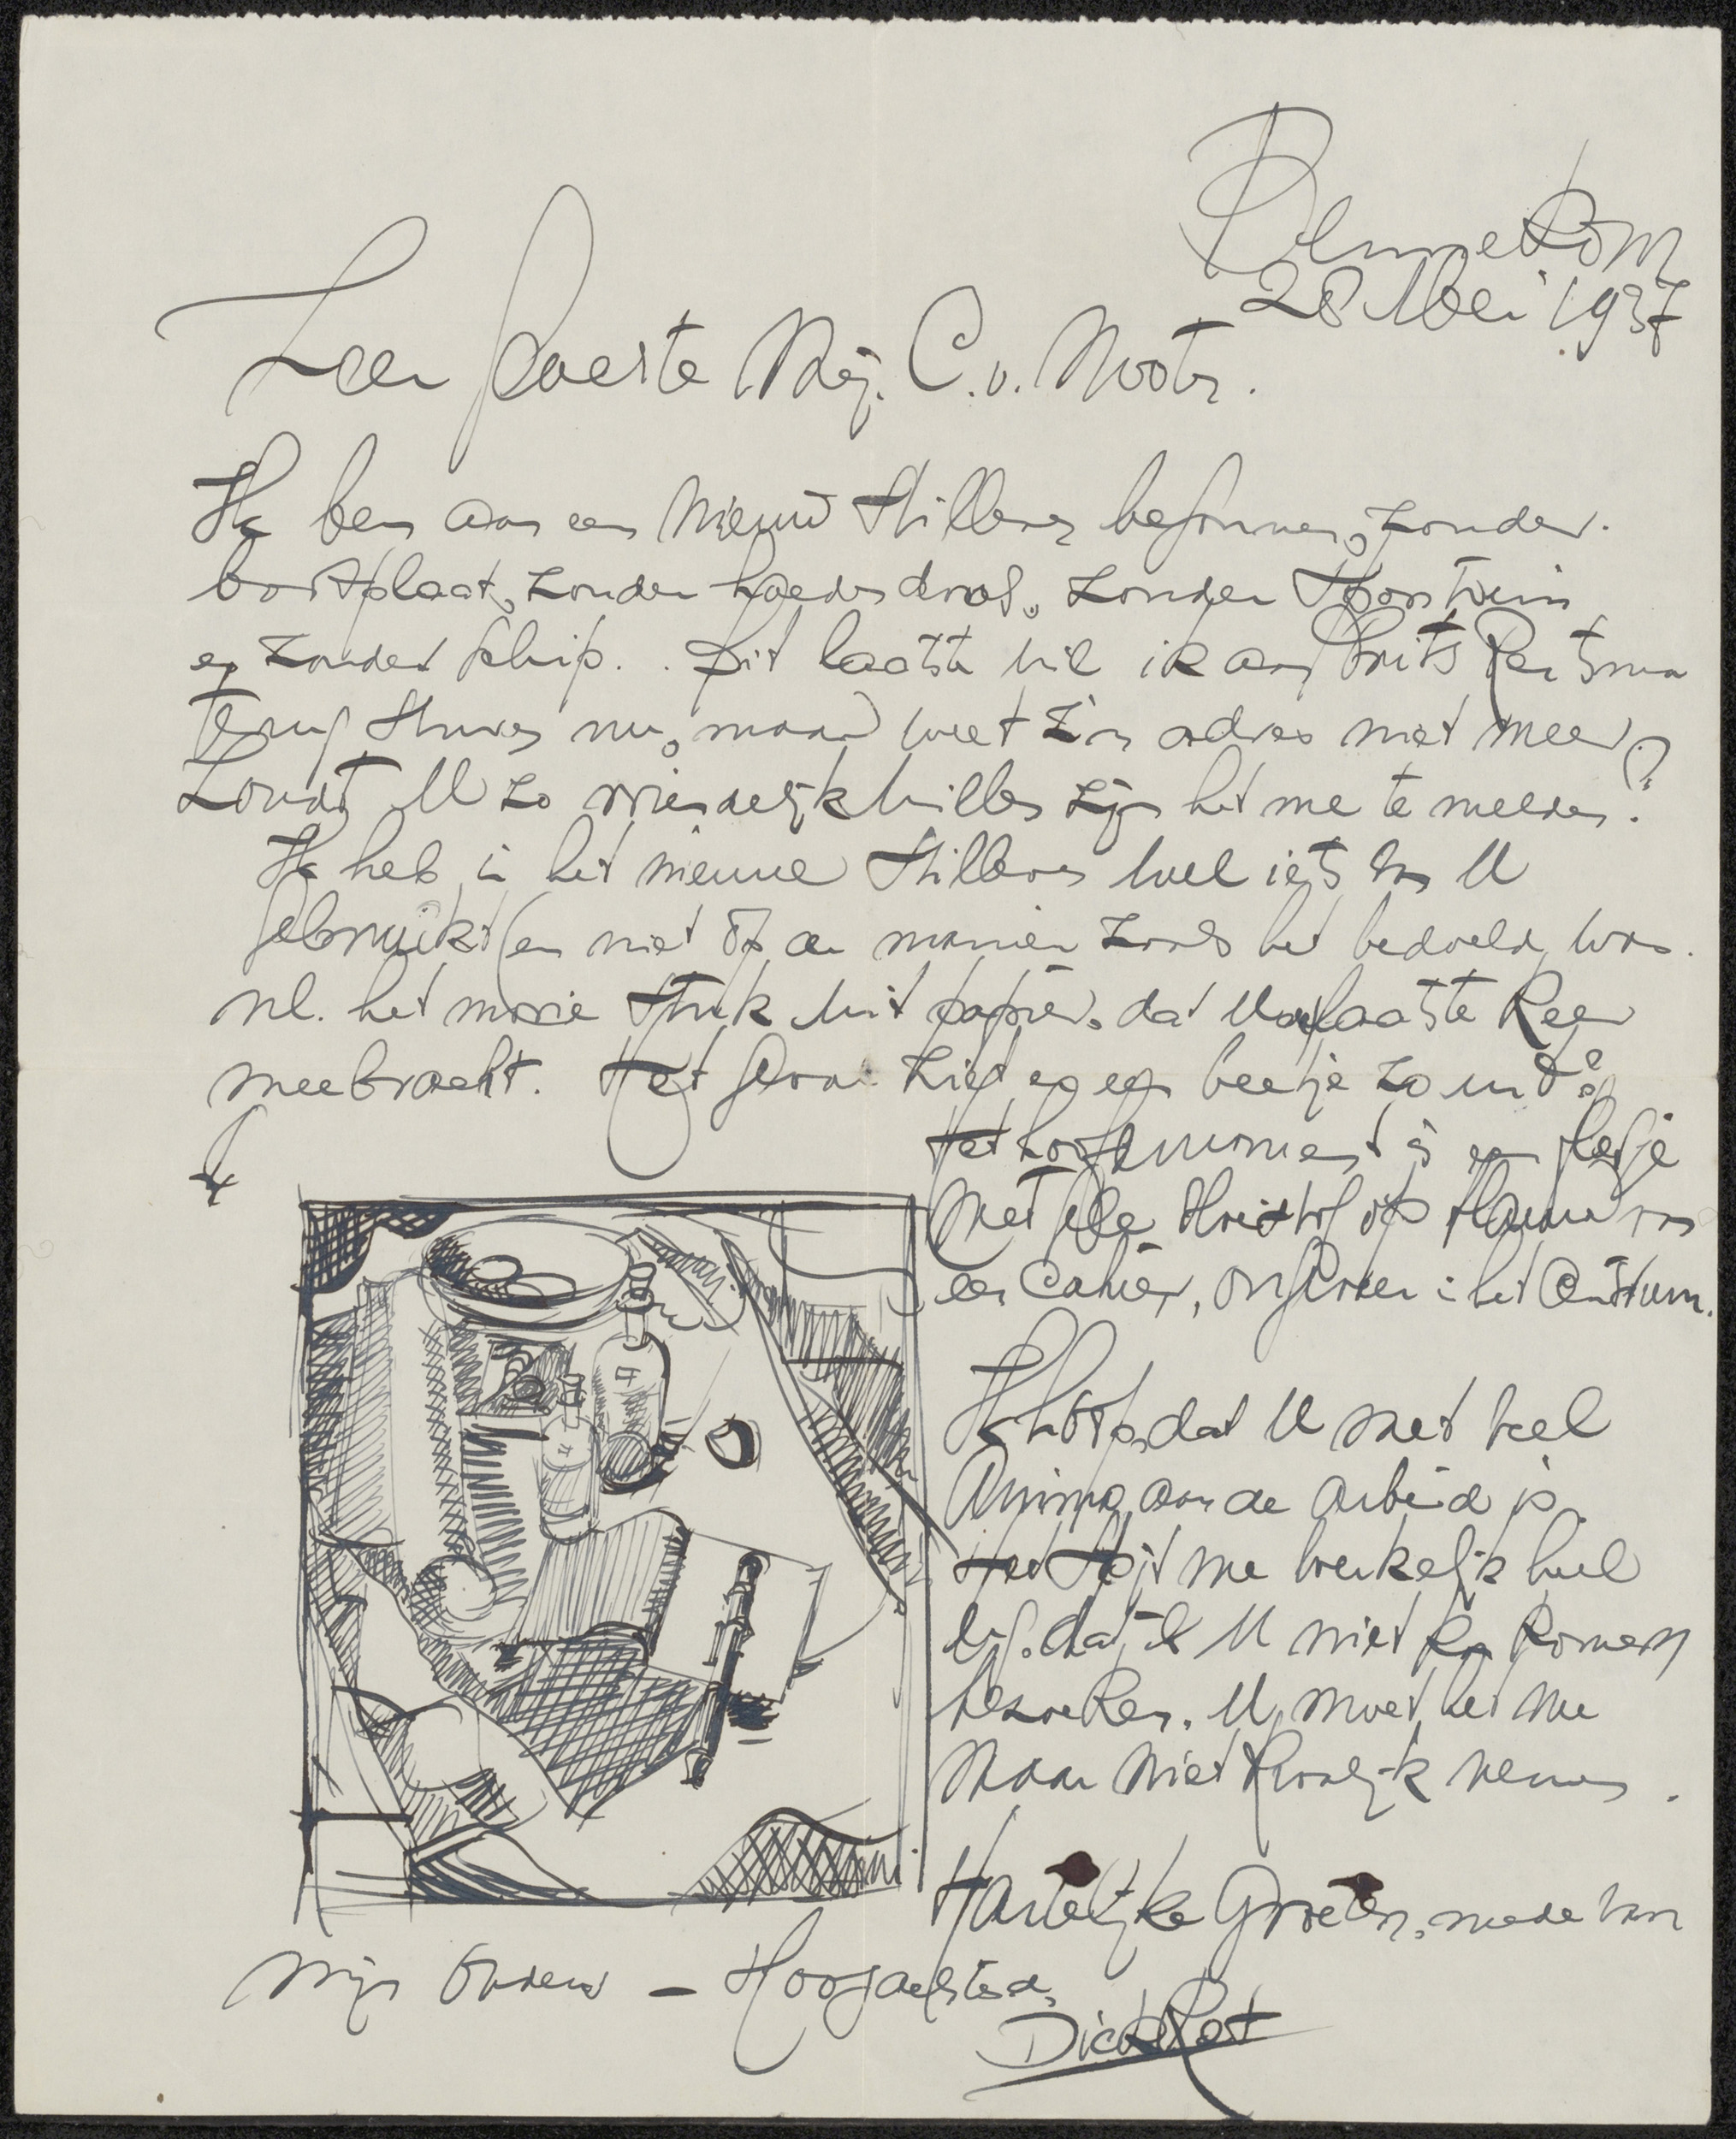 Bennekom
28 Mei 1937
Zeer Geeerde Mej. C. v. Moot.
Ik ben aan een nieuw Stilleven begonnen, zonder
borstplaat, zonder hoedendoos, zonder
en zonder schip. . Dit laatste wil ik aan Frits
terug sturen nu, maar weet z'n adres niet meer?
Zoudt U zo vriendelijk willen zijn het me te melden?
Ik heb in het nieuwe Stilleven wel iets van U
gebruikt (en niet op de manier zoals het bedoeld was.
nl. het mooie stuk wit papier, dat U de laatste keer
meebracht. Het ding ziet er een beetje zo uit:
Het hoofdmoment is een flesje
met gele op blauw van
een cahier, ongeveer in het Centrum.
Ik hoop, dat U met veel
Animo aan de arbeid is.
Het spijt me werkelijk heel
erg. dat ik U niet kan komen
bezoeken. U moet het me
maar niet kwalijk nemen.
Hartelijke Groeten, mede van
mijn Ouders — Hoogachtend,
Dick Ket